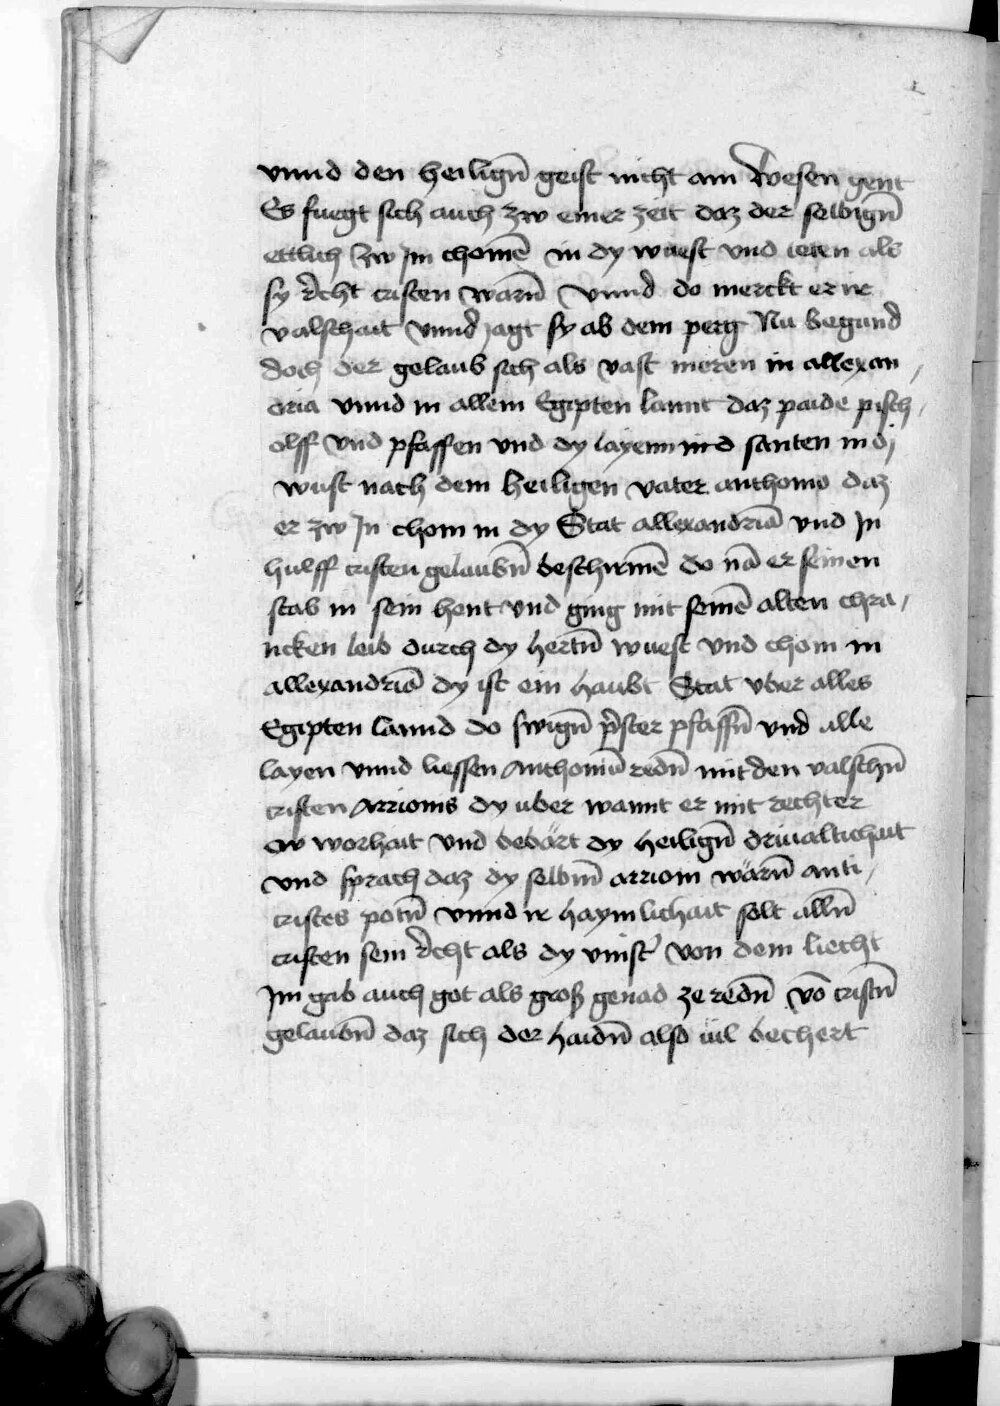 vnnd den heilign̄ geist nicht am wesen gent
Es fuegt sich auch zw einer zeit daz der selbign̄
ettlich zw Im chomē in dy wuest vnd teten als
sy recht cristen warn̄ vnnd do merckt er ir
valschait vnnd jagt sy ab dem perg Nu begund
doch der gelaub sich als vast meren in allexan /
dria vnnd in allem Egipten lannt daz paide pisch /
olff vnd pfaffen vnd dy layenn vnd santen in dj
wust nach dem heiligen vater anthonio daz
er zw In chom in dy Stat allexandriā vnd In
hulff cristen gelaubn̄ beschirmē do nā er seinen
stab in sein hent vnd ging mit seinē alten chra /
ncken leib durch dy hertn̄ wuest vnd chom in
allexandriā dy ist ein haubt Stat vber alles
Egipten lannd do swign̄ pr̄ster pfaffn̄ vnd alle
layen vnnd liessen Anthoniū redn̄ mit den valschn̄
cristen Arrionis dy uber wannt er mit rechter
or worhait vnd bebärt dy heilign̄ driualtichait
vnd sprach daz dy selbm̄ arriom wärn̄ anti /
cristes potn̄ vnnd ir haymlichait solt alln̄
cristen sein recht als dy vinst' von dem liecht
Im gab auch got als groß genad ze redn̄ vō cristn̄
gelaubn̄ daz sich der haidn̄ also uil bechert